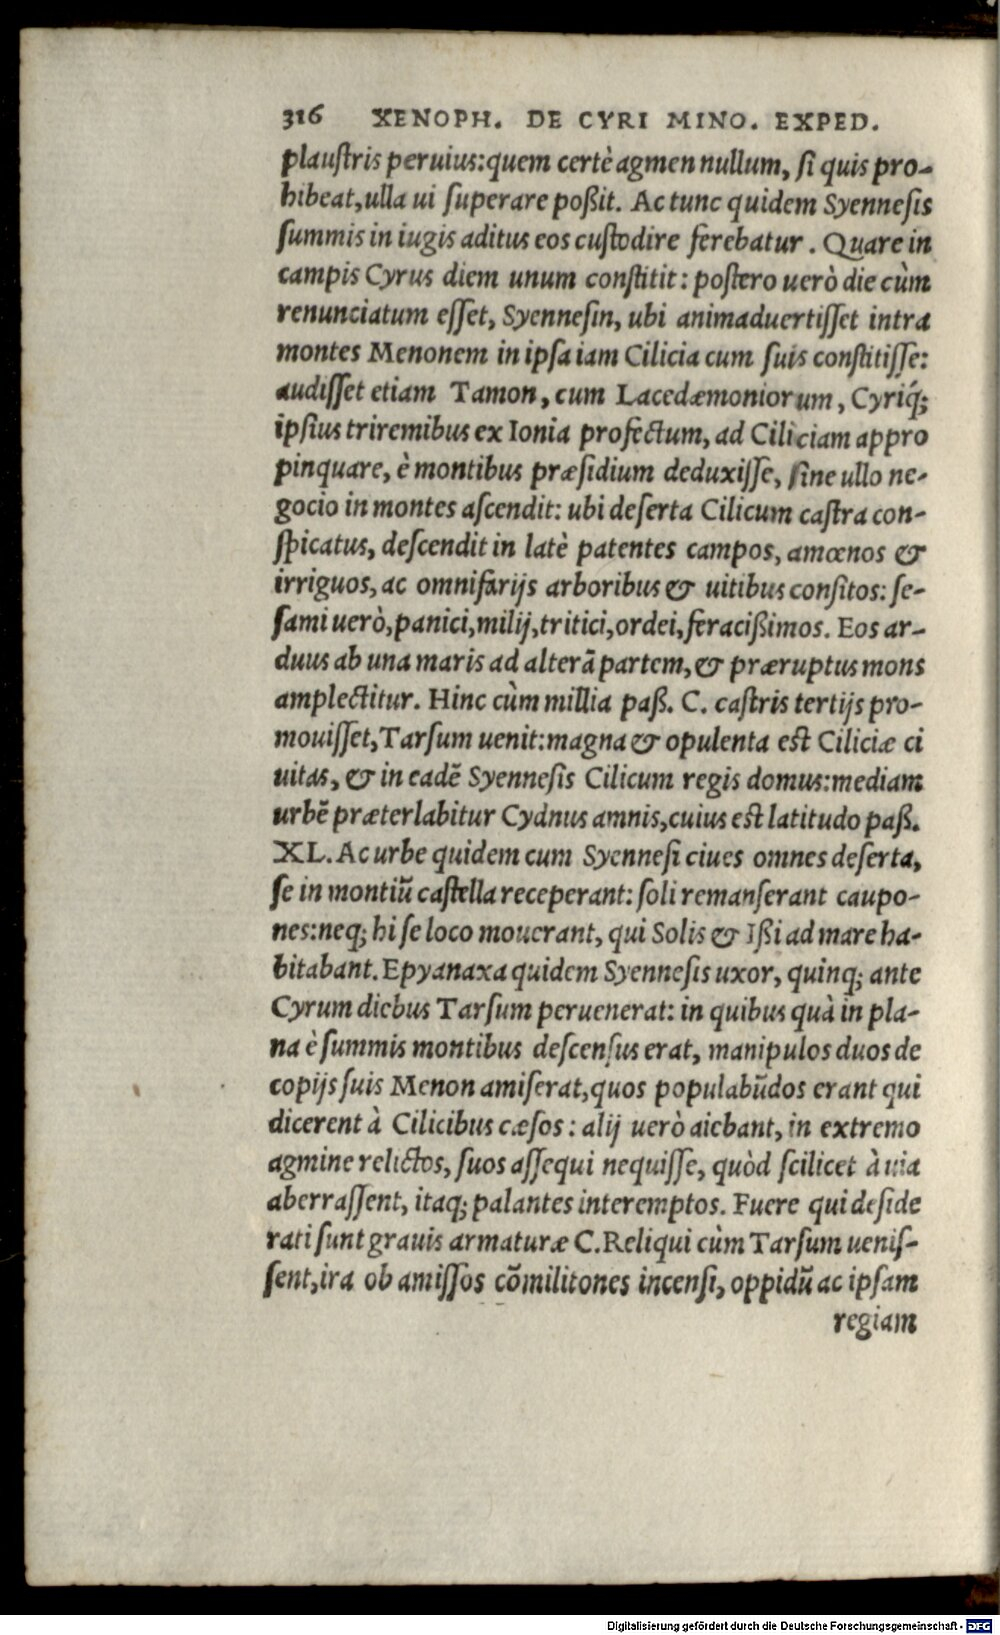 316 XENOPH. DE CYRI MINO. EXPED.
plauſtris peruius: quem certè agmen nullum, ſi quis pro-
hibeat, ulla ui ſuperare poßit. Ac tunc quidem Syenneſis
ſummis in iugis aditus eos cuſtodire ferebatur. Quare in
campis Cyrus diem unum conſtitit: poſtero uerò die cùm
renunciatum eſſet, Syenneſin, ubi animaduertiſſet intra
montes Menonem in ipſa iam Cilicia cum ſuis conſtitiſſe:
audiſſet etiam Tamon, cum Lacedæmoniorum, Cyriq́;
ipſius triremibus ex Ionia profectum, ad Ciliciam appro
pinquare, è montibus præſidium deduxiſſe, ſine ullo ne-
gocio in montes aſcendit: ubi deſerta Cilicum caſtra con-
ſpicatus, deſcendit in latè patentes campos, amœnos &
irriguos, ac omnifarijs arboribus & uitibus conſitos: ſe-
ſami uerò, panici, milij, tritici, ordei, feracißimos. Eos ar-
duus ab una maris ad alterā partem, & præruptus mons
amplectitur. Hinc cùm millia paß. C. caſtris tertijs pro-
mouiſſet, Tarſum uenit: magna & opulenta eſt Ciliciæ ci
uitas, & in eadē Syenneſis Cilicum regis domus: mediam
urbē præterlabitur Cydnus amnis, cuius eſt latitudo paß.
XL. Ac urbe quidem cum Syenneſi ciues omnes deſerta,
ſe in montiū caſtella receperant: ſoli remanſerant caupo-
nes: neq; hi ſe loco mouerant, qui Solis & Ißi ad mare ha-
bitabant. Epyanaxa quidem Syenneſis uxor, quinq; ante
Cyrum diebus Tarſum peruenerat: in quibus quà in pla-
na è ſummis montibus deſcenſus erat, manipulos duos de
copijs ſuis Menon amiſerat, quos populabūdos erant qui
dicerent à Cilicibus cæſos: alij uerò aiebant, in extremo
agmine relictos, ſuos aſſequi nequiſſe, quòd ſcilicet à uia
aberraſſent, itaq; palantes interemptos. Fuere qui deſide
rati ſunt grauis armaturæ C. Reliqui cùm Tarſum ueniſ-
ſent, ira ob amiſſos cōmilitones incenſi, oppidū ac ipſam
regiam
Digitalisierung gefördert durch die Deutsche Forschungsgemeinschaft - DFG